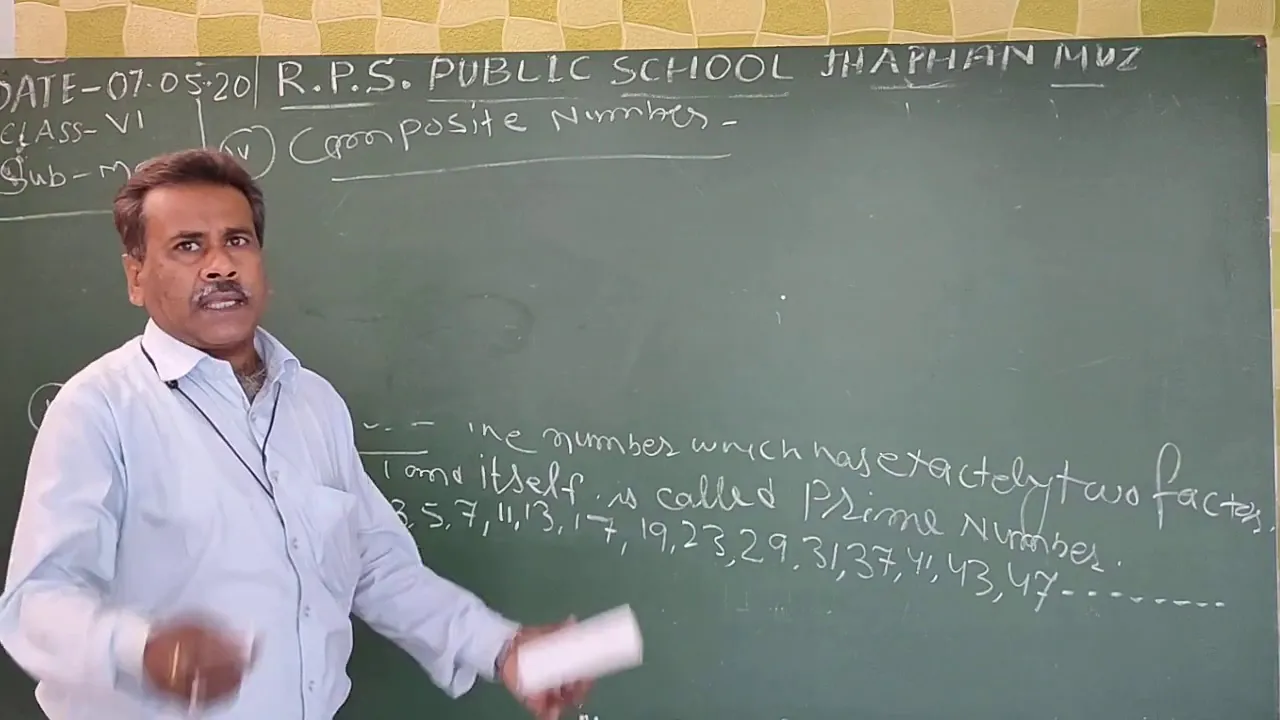 DATE-07.05.20 R.P.S. PUBLIC SCHOOL JHAPHAN MUZ
CLASS-VI
Sub-M
(v) Composite Number-
The number which has exactely two factors.
1 and itself. is called Prime Number.
3, 5, 7, 11, 13, 17, 19, 23, 29, 31, 37, 41, 43, 47---------